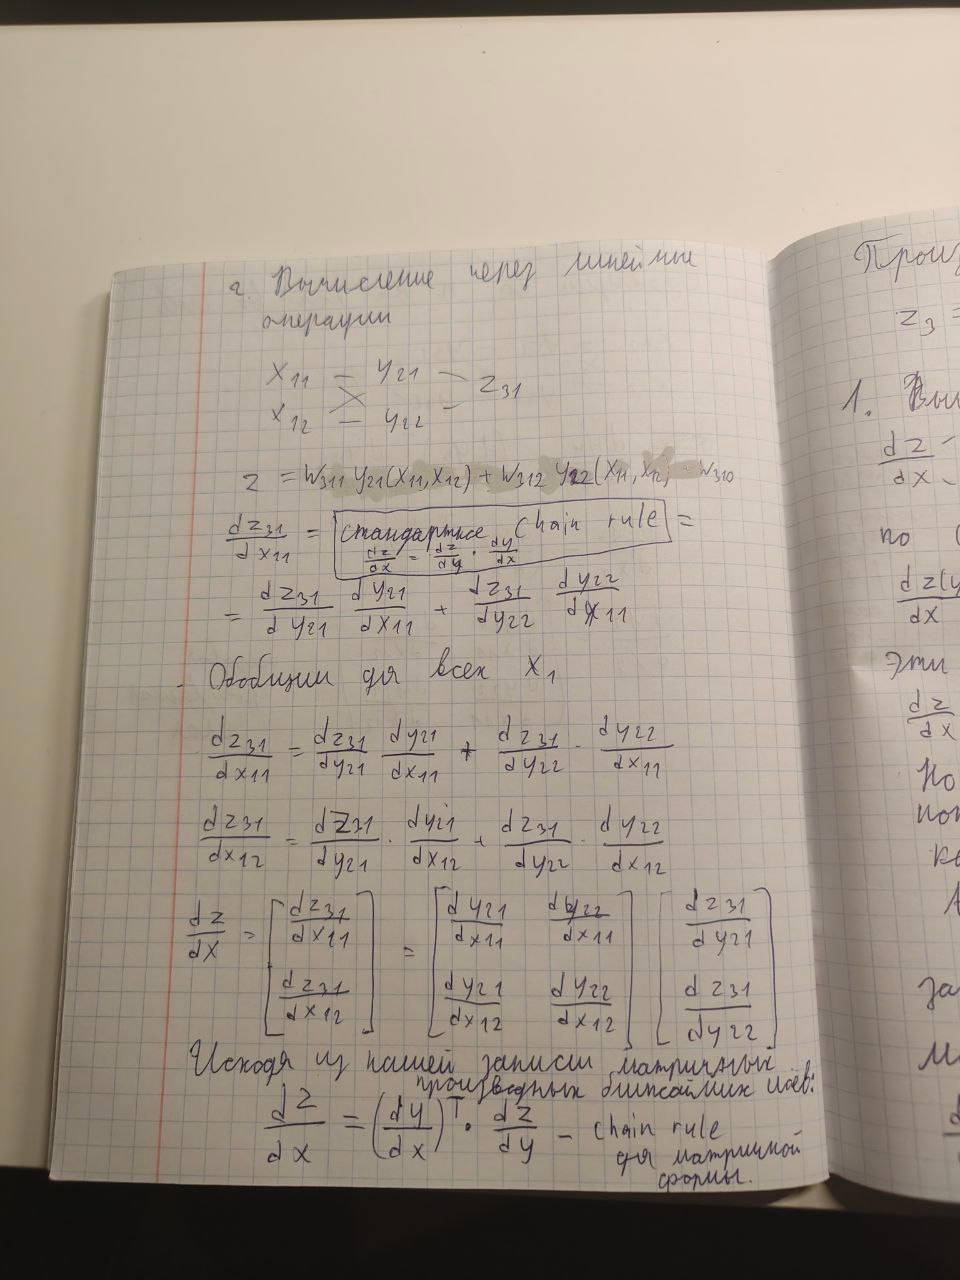 2. Вычисление через линейные
операции
x11 – y21 – z31
x12 – y22 –
z = W311 y21(x11, x12) + W312 y22(x11, x12) + W310
dz31/dx11 = [стандартное chain rule dz/dx = dz/dy · dy/dx] =
= dz31/dy21 dy21/dx11 + dz31/dy22 dy22/dx11
Обобщим для всех x1
dz31/dx11 = dz31/dy21 dy21/dx11 + dz31/dy22 · dy22/dx11
dz31/dx12 = dz31/dy21 · dy21/dx12 + dz31/dy22 · dy22/dx12
dz/dx = [dz31/dx11 dz31/dx12] = [dy21/dx11 dy22/dx11 dy21/dx12 dy22/dx12] [dz31/dy21 dz31/dy22]
Исходя из нашей записи матричных
производных ближайших слоёв:
dz/dx = (dy/dx)^T · dz/dy – chain rule
для матричной
формы.
Произ
z3 =
1. Вы
dz
dx
по
dz(y
dx
Эти
dz
dx
Но
пот
ко
за